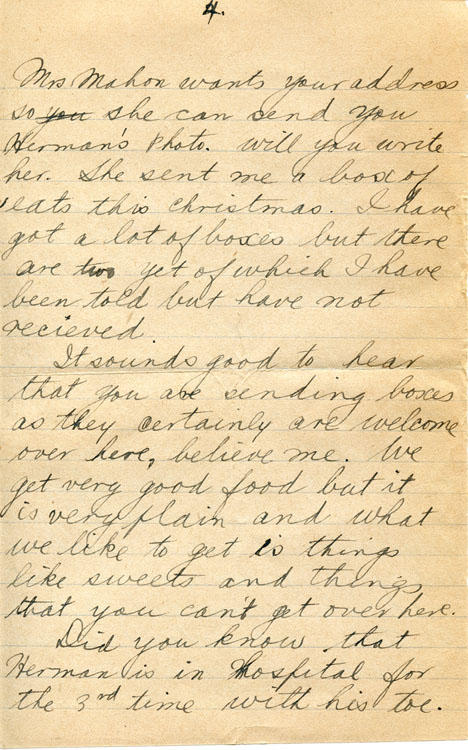 4.
Mrs Mahon wants your address
so you she can send you
Herman's Photo. will you write
her. She sent me a box of
eats this christmas. I have
got a lot of boxes but there
are two yet of which I have
been told but have not
recieved.
It sounds good to hear
that you are sending boxes
as they certainly are welcome
over here, believe me. We
get very good food but it
is very plain and what
we like to get is things
like sweets and things
that you can't get over here.
Did you know that
Herman is in Hospital for
the 3rd time with his toe.